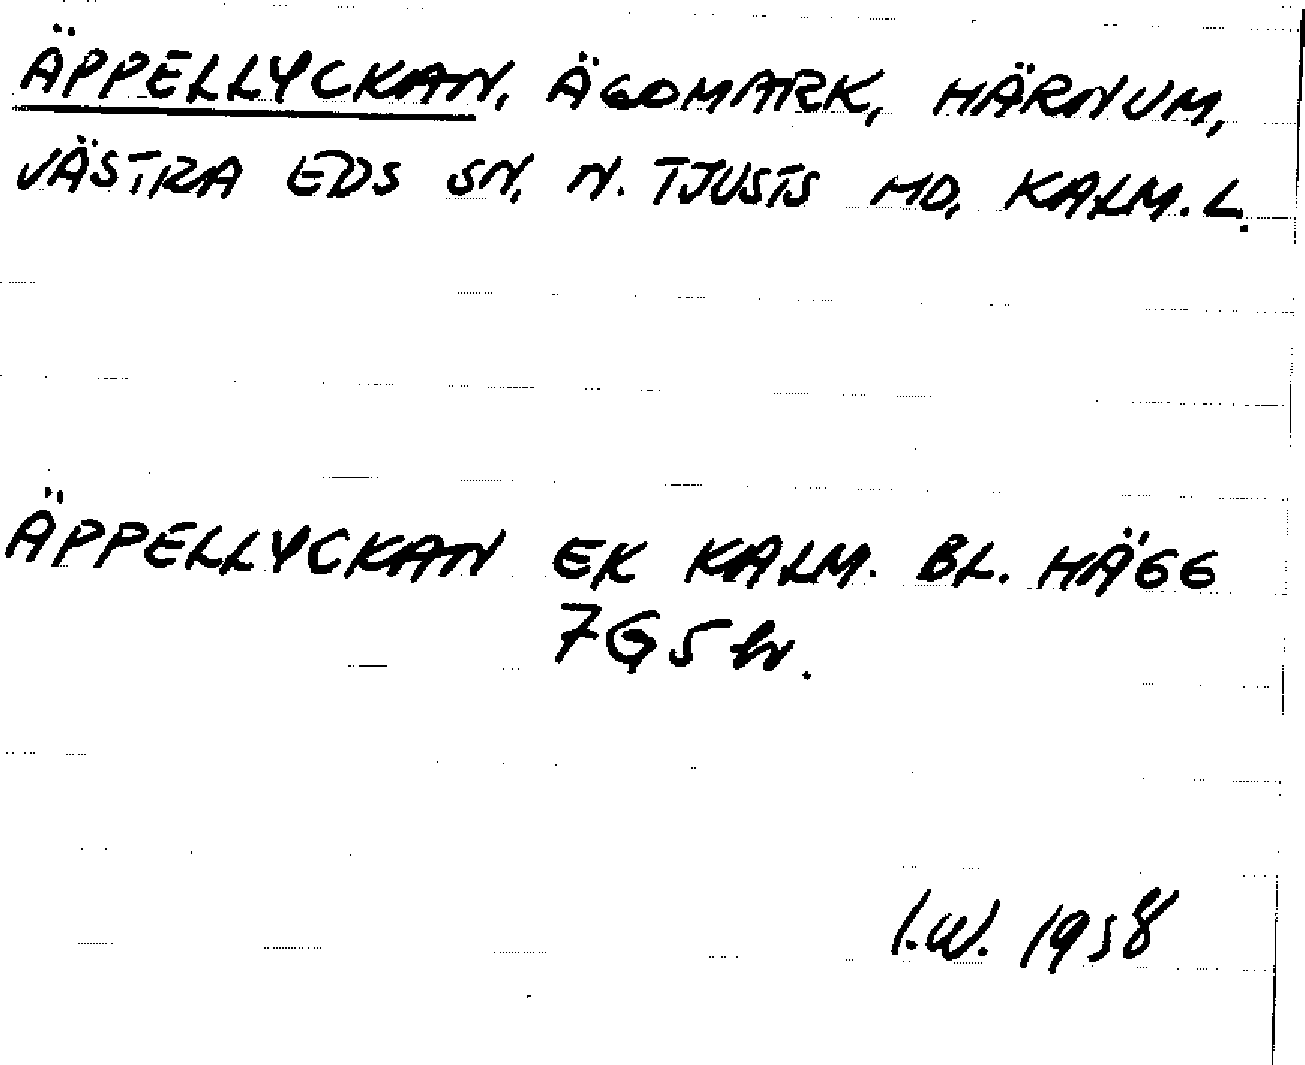 ÄPPELLYCKAN, ÄGOMARK, HÄRNUM,
VÄSTRA EDS SN, N. TJUSTS HD, KALM. L.
ÄPPELLYCKAN EK KALM. BL. HÄGG
7G5
I.W. 1958